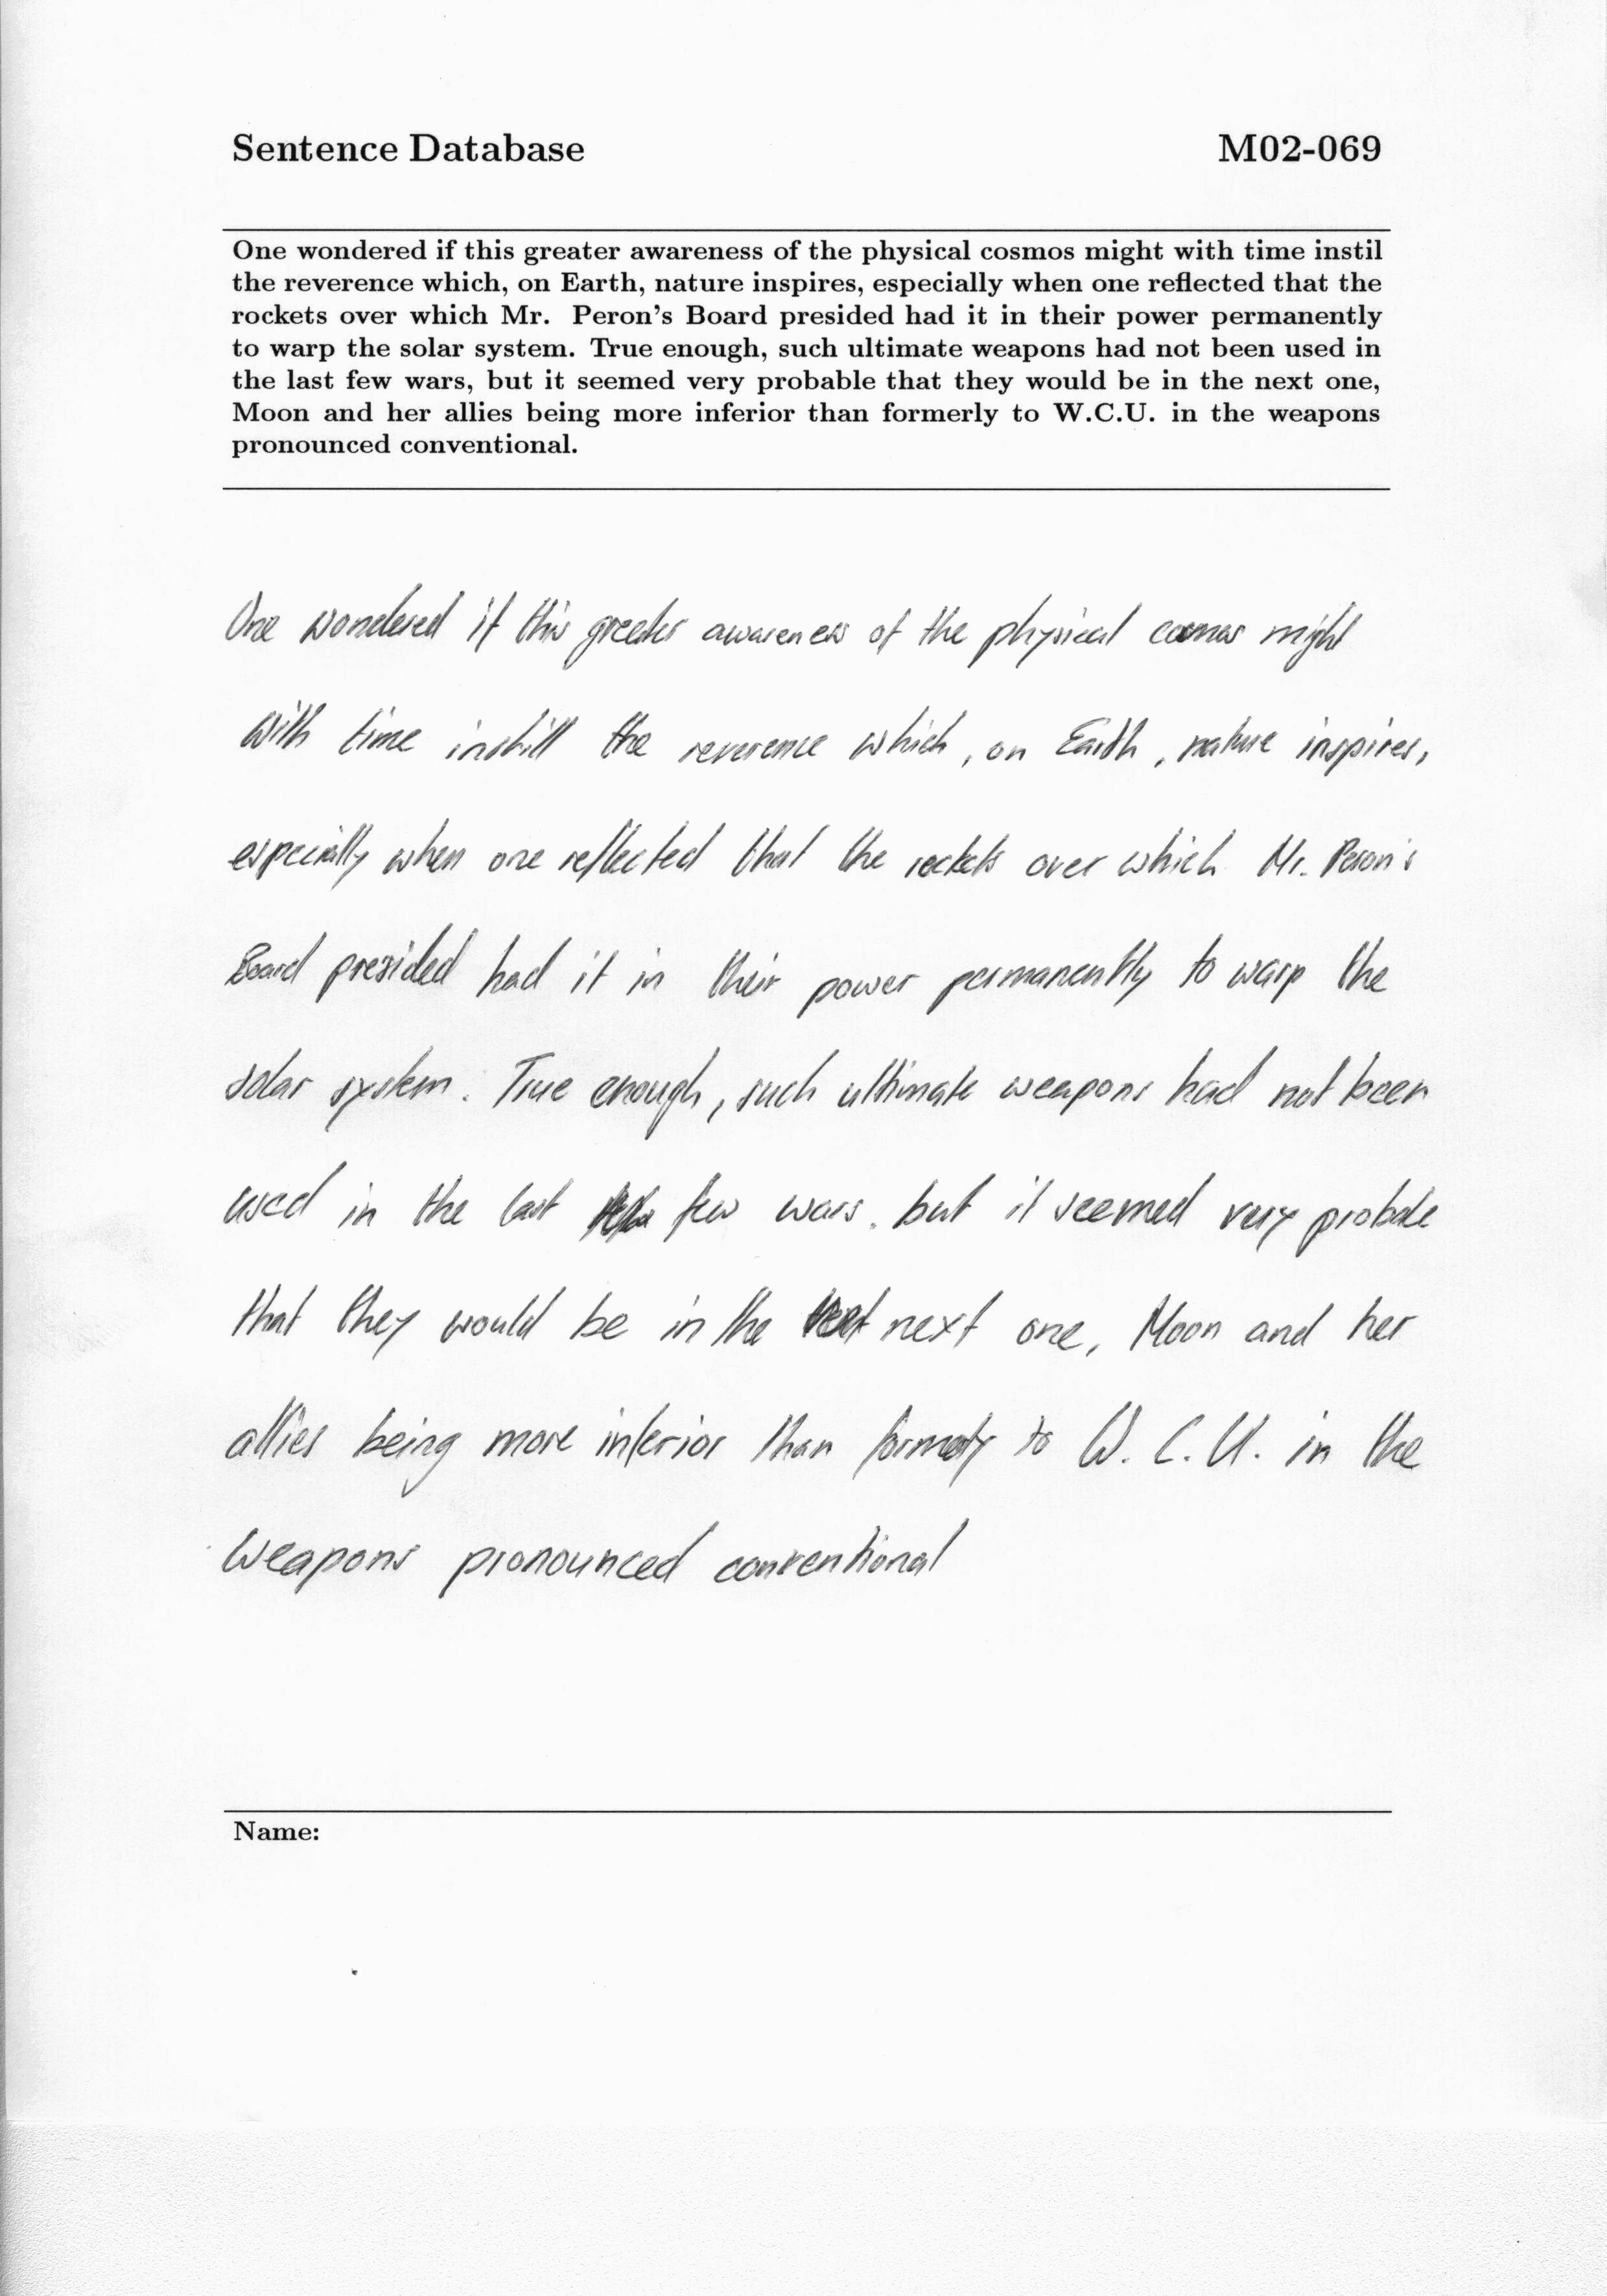 Sentence Database M02-069
One wondered if this greater awareness of the physical cosmos might with time instil
the reverence which, on Earth, nature inspires, especially when one reflected that the
rockets over which Mr. Peron's Board presided had it in their power permanently
to warp the solar system. True enough, such ultimate weapons had not been used in
the last few wars, but it seemed very probable that they would be in the next one,
Moon and her allies being more inferior than formerly to W.C.U. in the weapons
pronounced conventional.
One wondered if this greater awareness of the physical cosmos might
with time instill the reverence which, on Earth, nature inspires,
especially when one reflected that the rockets over which Mr. Peron's
Board presided had it in their power permanently to warp the
solar system. True enough, such ultimate weapons had not been
used in the last few wars. but it seemed very probable
that they would be in the next one, Moon and her
allies being more inferior than formerly to W. C. U. in the
weapons pronounced conventional
Name: